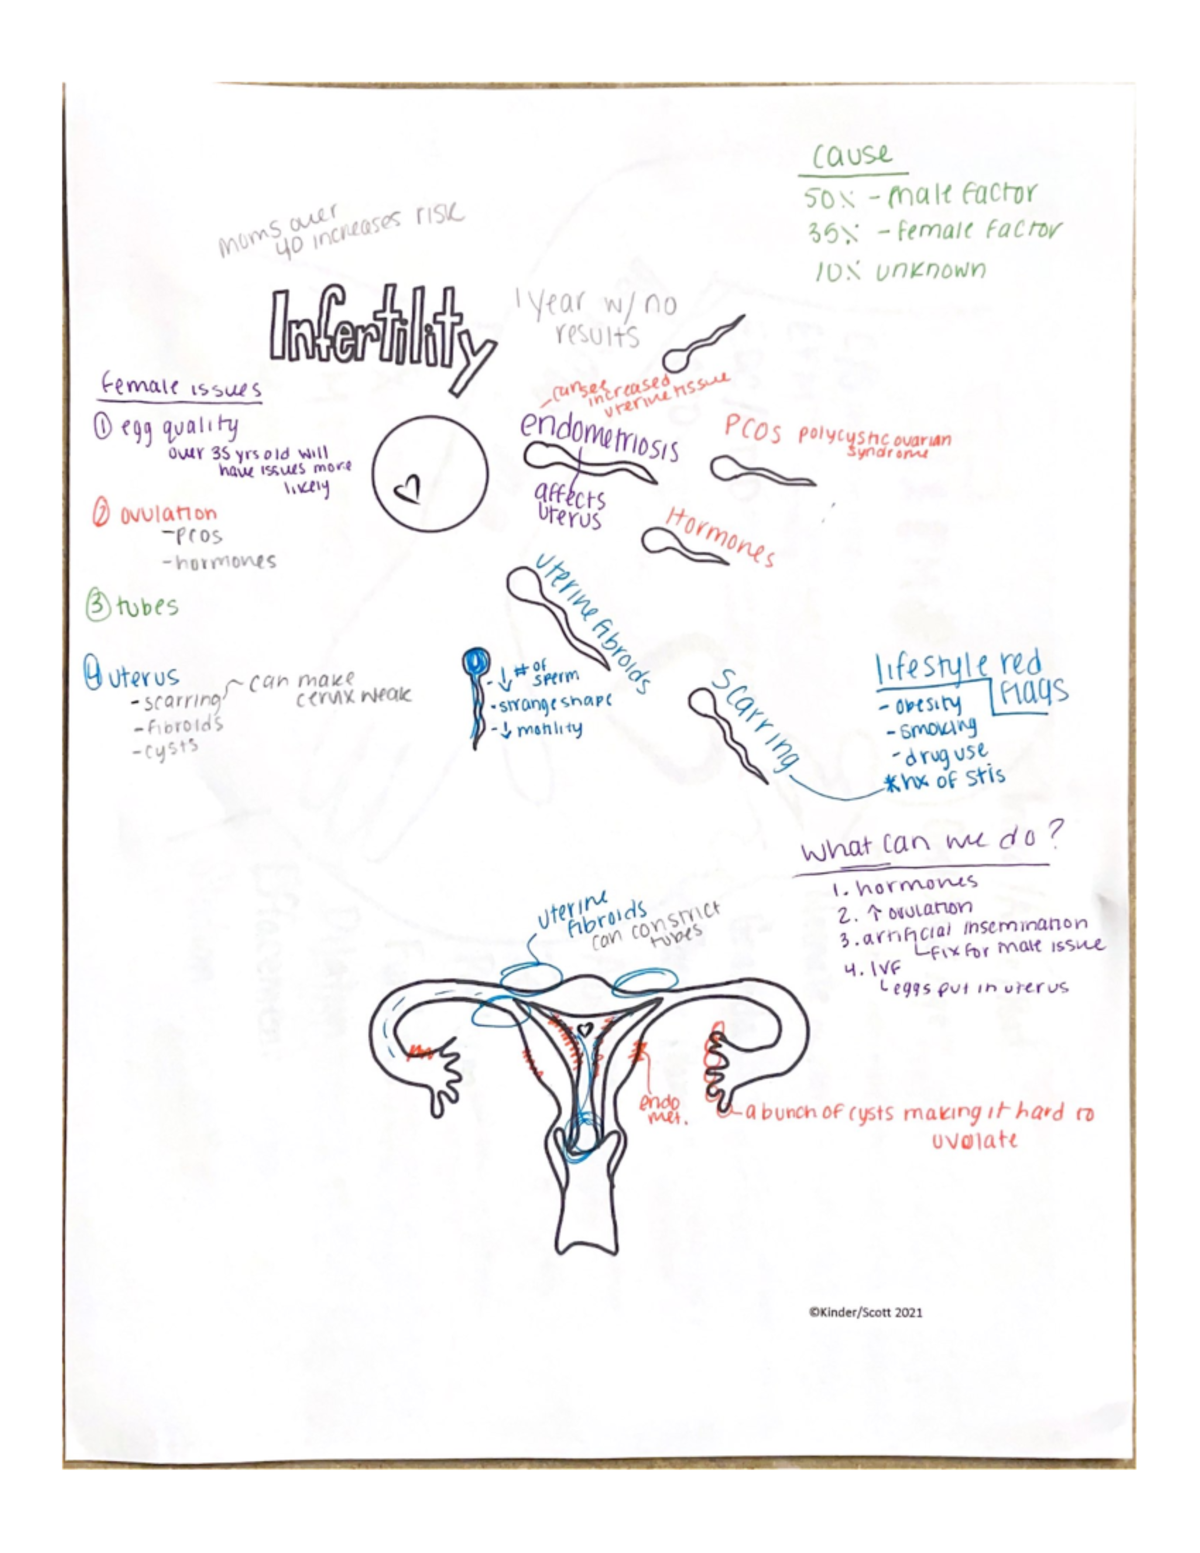 cause
50% - male factor
35% - female factor
10% unknown
moms over
40 increases risk
Infertility
1 year w/ no
results
female issues
① egg quality
over 35 yrs old will
have issues more
likely
② ovulation
- PCOS
- hormones
③ tubes
④ uterus
- scarring
- fibroids
- cysts
can make
cervix weak
- causes increased
uterine tissue
endometriosis
affects
uterus
PCOS polycystic ovarian
syndrome
Hormones
uterine fibroids
- ↓ # of
sperm
- strange shape
- ↓ motility
scarring
lifestyle red
flags
- obesity
- smoking
- drug use
* hx of STIs
what can we do?
1. hormones
2. ↑ ovulation
3. artificial insemination
fix for male issue
4. IVF
eggs put in uterus
uterine
fibroids
can constrict
tubes
endo
met.
a bunch of cysts making it hard to
uvolate
©Kinder/Scott 2021